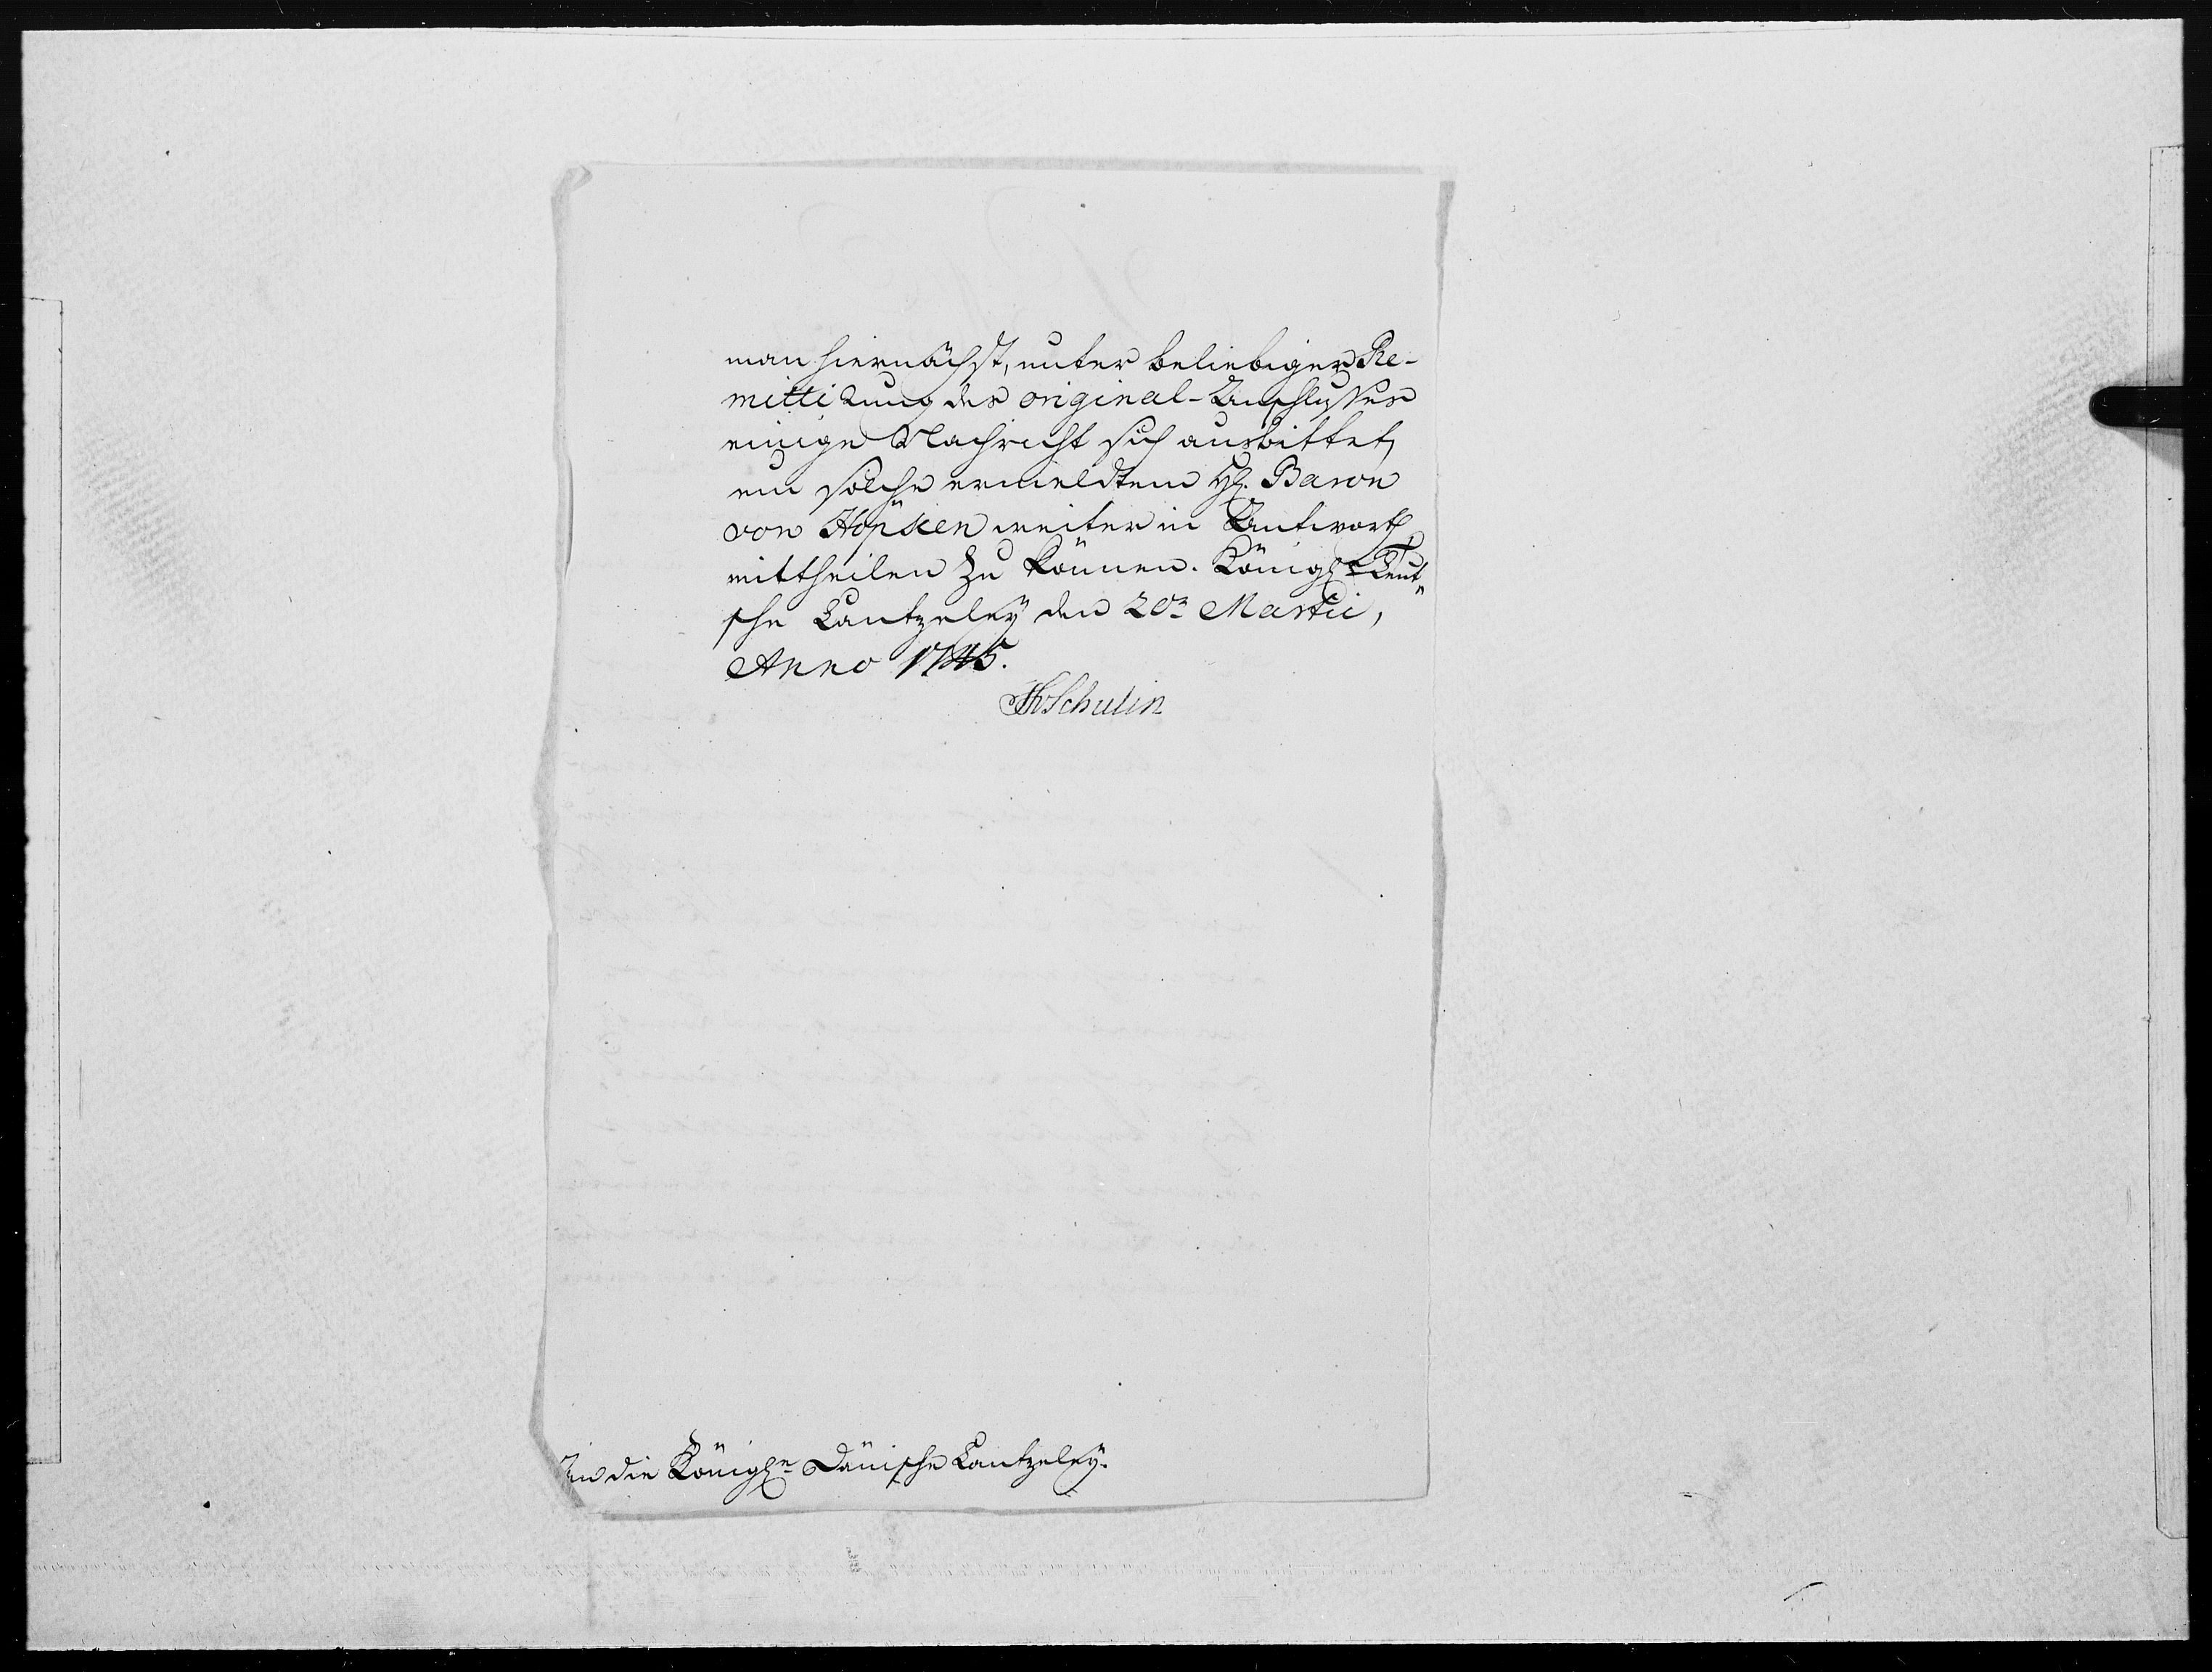 man hiernächst, unter beliebiger Re-
mittirung des original-Anschlusses
einige Nachricht sich ausbittet,
um solche ermeldtem H. Baron
von Höpken weiter in Antwort
mittheilen zu können. Königl. Teut-
sche Cantzeley den 20n Martii,
Anno 1745.
JHvSchulin
An die Königle Dänische Cantzeley.